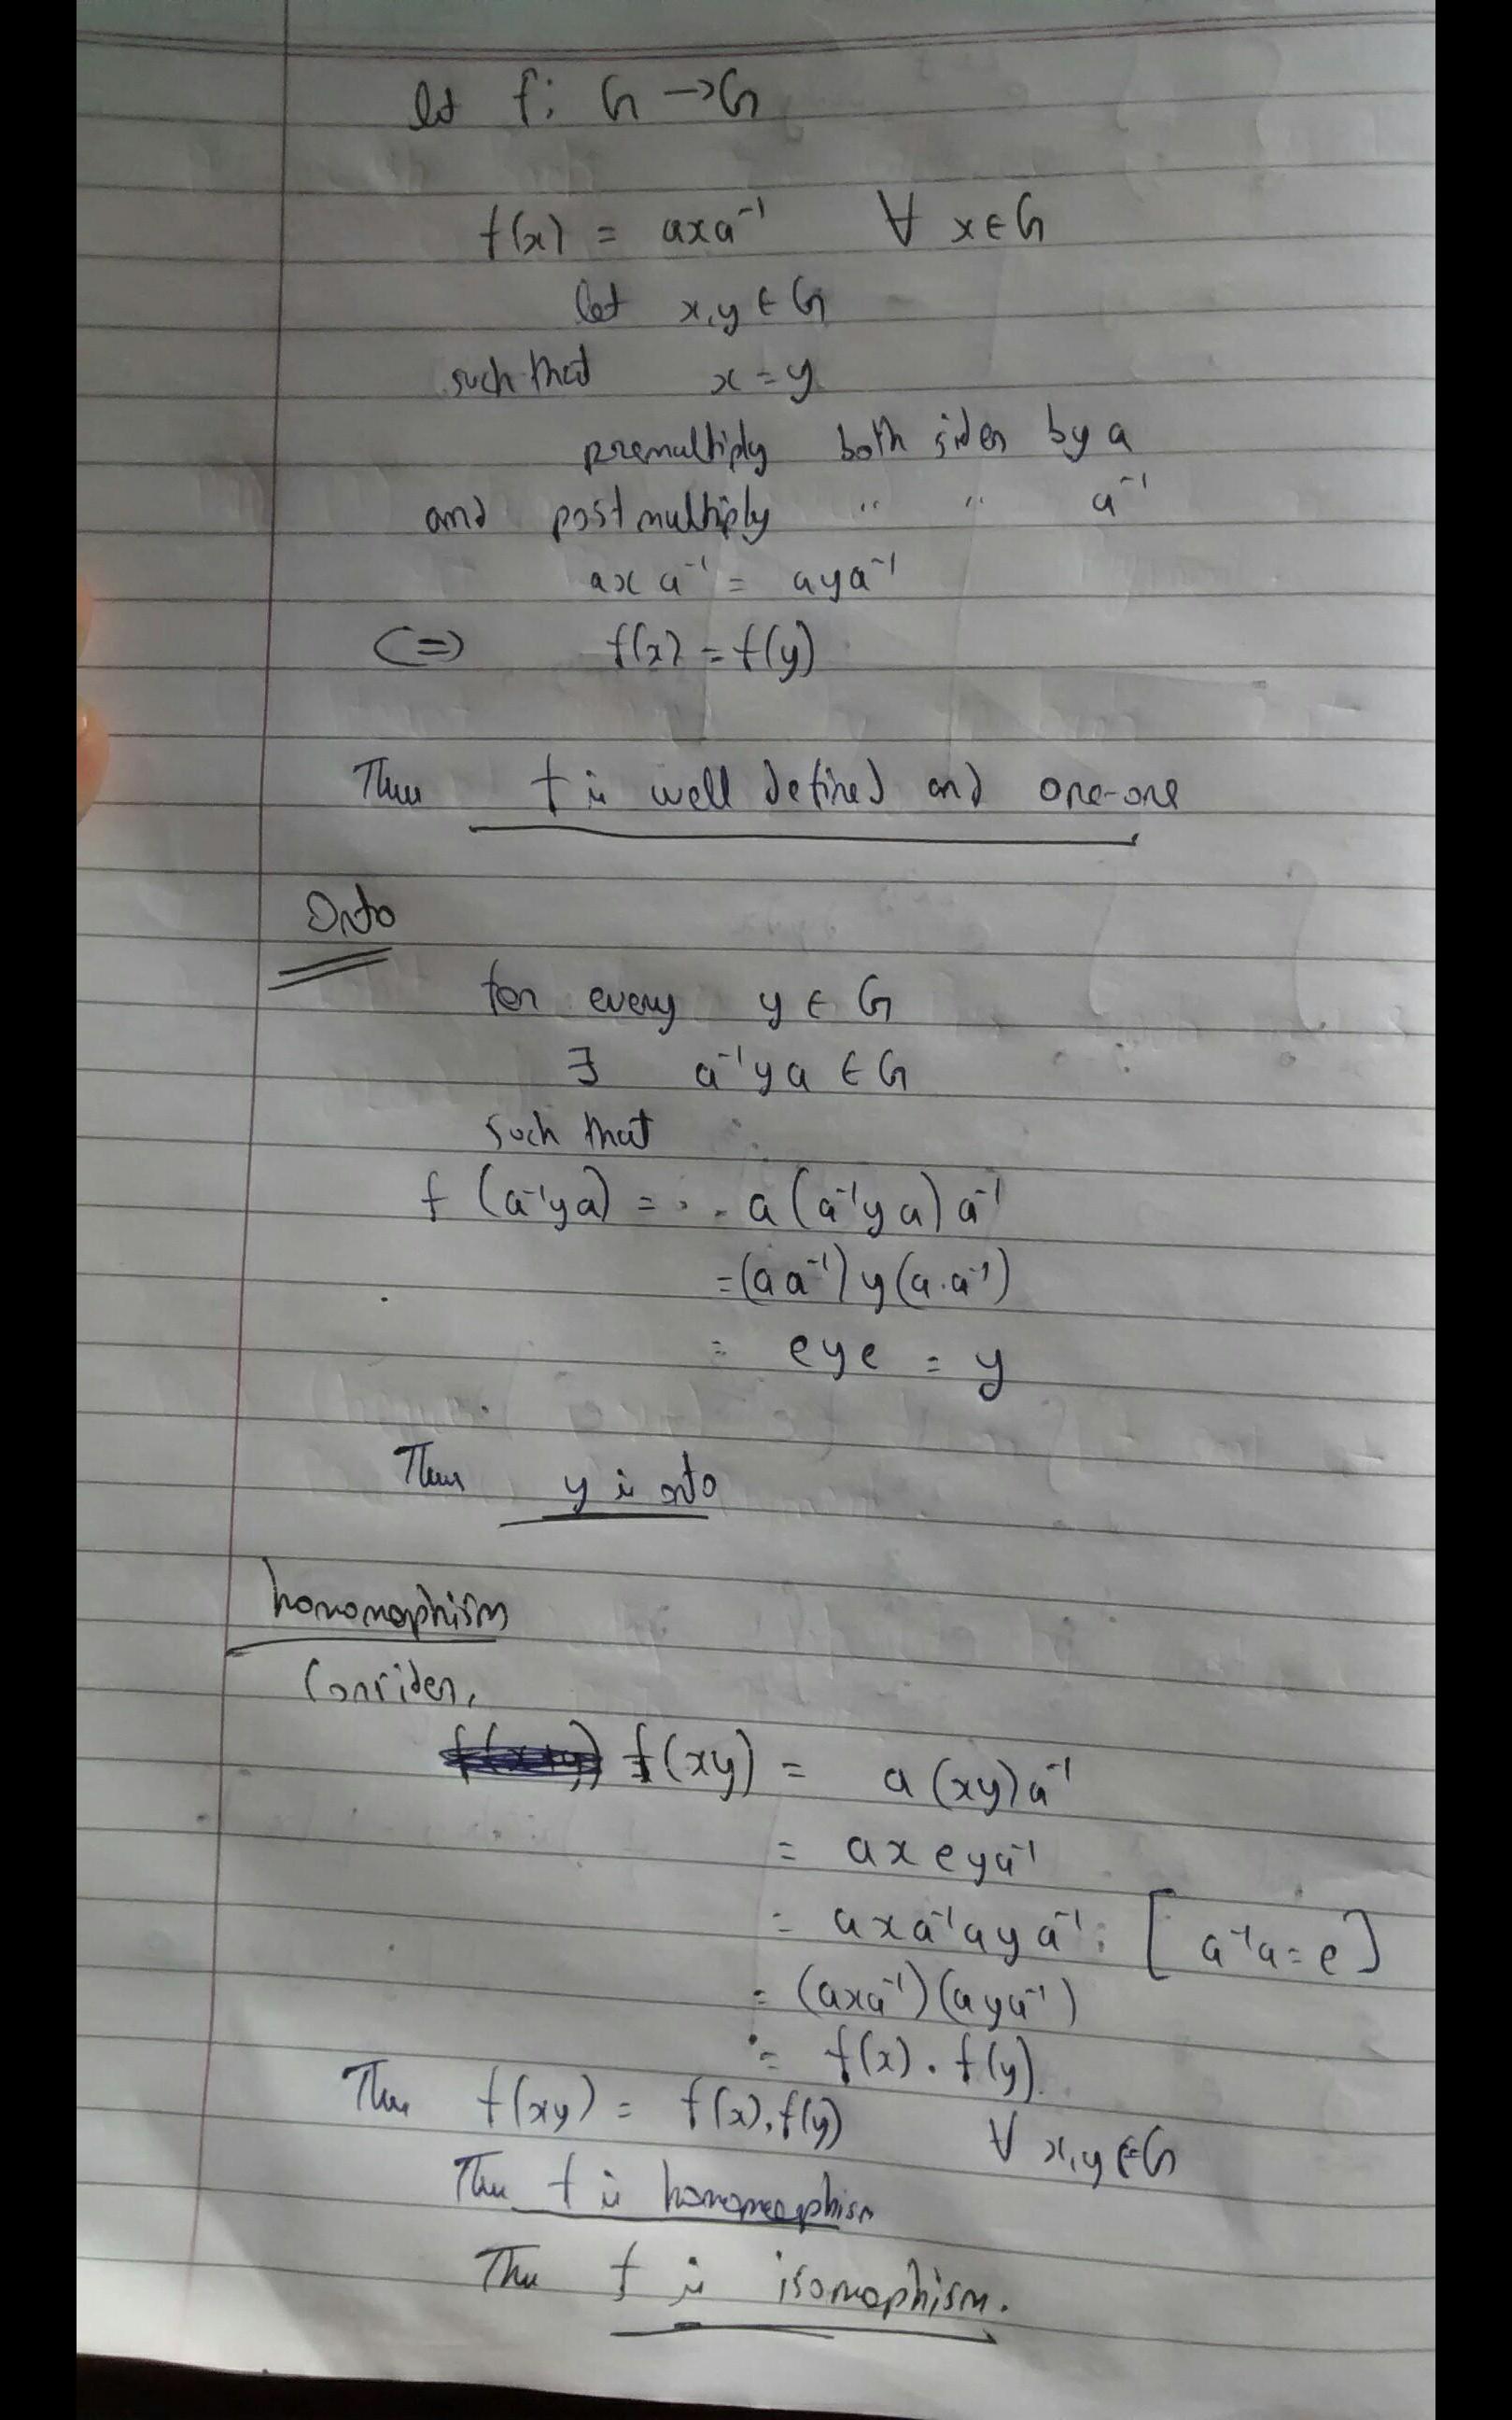 let f: G → G
f(x) = axa⁻¹ ∀ x ∈ G
let x, y ∈ G
such that x = y
premultiply both sides by a
and postmultiply " " a⁻¹
axa⁻¹ = aya⁻¹
⇔ f(x) = f(y)
Thus f is well defined and one-one
Onto
for every y ∈ G
∃ a⁻¹ya ∈ G
such that
f(a⁻¹ya) = a(a⁻¹ya)a⁻¹
= (aa⁻¹)y(a.a⁻¹)
= eye = y
Thus y is onto
homomophism
Consider,
f(xy) = a(xy)a⁻¹
= axeya⁻¹
= axa⁻¹aya⁻¹ : [a⁻¹a = e]
= (axa⁻¹)(aya⁻¹)
= f(x).f(y).
Thus f(xy) = f(x).f(y) ∀ x,y ∈ G
Thus f is homomorphism
Thus f is isomophism.